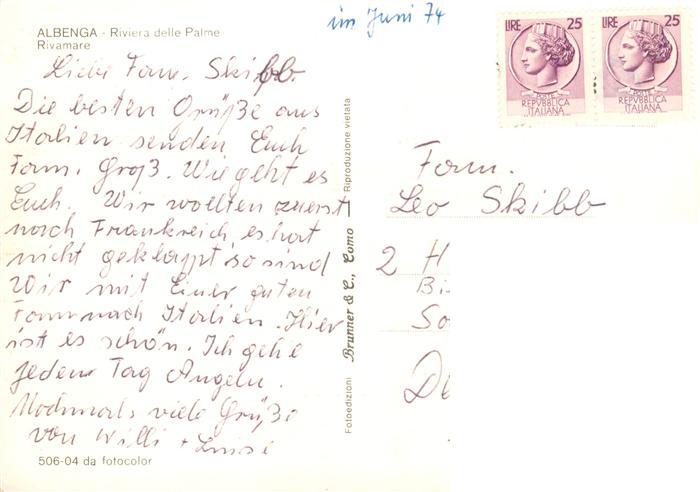 im Juni 74
ALBENGA - Riviera delle Palme
Rivamare
LIRE 25
POSTE
REPVBBLICA
ITALIANA
LIRE 25
POSTE
REPVBBLICA
ITALIANA
Liebe Fam. Skibb
Die besten Grüße aus
Italien senden Euch
Fam. Groß. Wie geht es
Euch. Wir wollten zuerst
nach Frankreich, es hat
nicht geklappt, so sind
Wir mit Einer guten
Fam nach Italien. Hier
ist es schön. Ich gehe
jeden Tag Angeln.
Nochmals viele Grüße
von Willi + Luise
506-04 da fotocolor
Fotoedizioni Brunner & C., Como Riproduzione vietata
Fam.
Leo Skibb
2 H
Bi
So
De